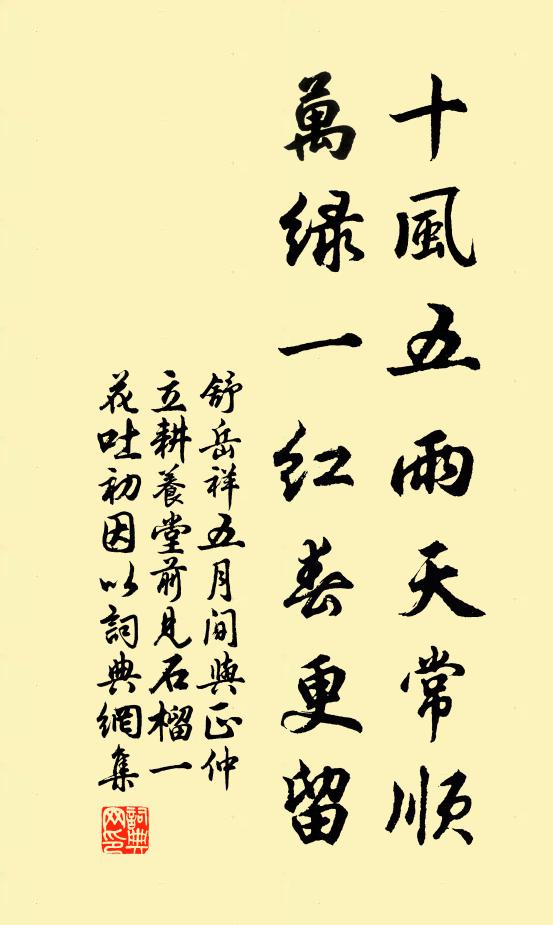 十風五雨天常順
萬緑一紅春更留
舒岳祥五月间與正仲
立耕養堂前見石榴一
花吐初因以詞典網集
詞典网印